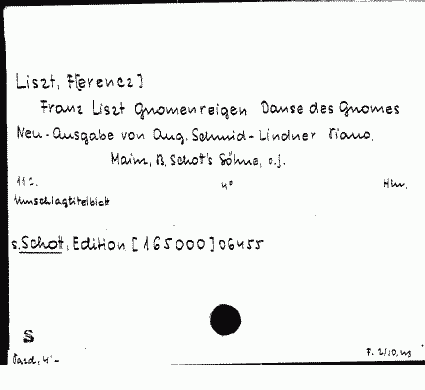 Liszt, F[erencz]
Franz Liszt Gnomenreigen Danse des Gnomes
Neu-Ausgabe von Aug. Schmid-Lindner Piano.
Mainz, B. Schott's Söhne, o.J.
11 S. 4° Hlw.
Umschlagtitelbild
s. Schott, Edition [165000] 06455
S